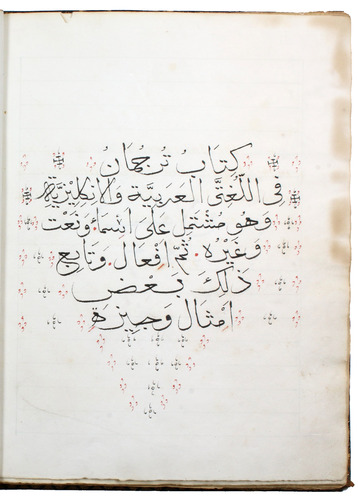 كتاب ترجمان
في اللغتى العربية والانكليزية
وهو مشتمل على اسماء ونعت
وغيره ثم افعال وتابع
ذلك بعض
امثال وجيزة